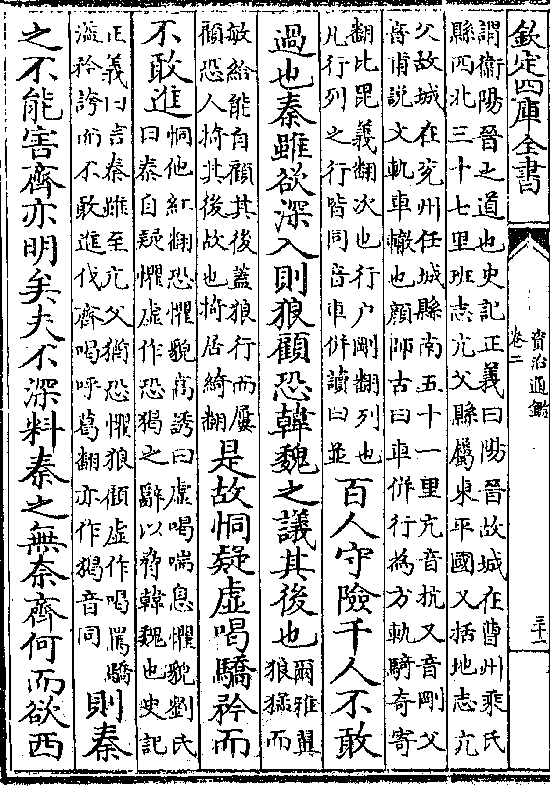 欽定四庫全書
資治通鑑
卷二
三十一
謂衛陽晉之道也史記正義曰陽晉故城在曹州乘氏
縣西北三十七里班志亢父縣屬東平國又括地志亢
父故城在兖州任城縣南五十一里亢音抗又音剛父
音甫説文軌車轍也顔師古曰車併行為方軌騎奇寄
翻比毘義翻次也行户剛翻列也
凡行列之行皆同音車併讀曰並
百人守險千人不敢
過也秦雖欲深入則狼顧恐韓魏之議其後也
爾雅翼
狼猛而
敏給能自顧其後蓋狼行而屢
顧恐人掎其後故也掎居綺翻
是故恫疑虛喝驕矜而
不敢進
恫他紅翻恐懼貌高誘曰虛喝喘息懼貌劉氏
曰秦自疑懼虛作恐猲之辭以脅韓魏也史記
正義曰言秦雖至亢父猶恐懼狼顧虛作喝罵驕
溢矜誇而不敢進伐齊喝呼葛翻亦作猲音同
則秦
之不能害齊亦明矣夫不深料秦之無奈齊何而欲西